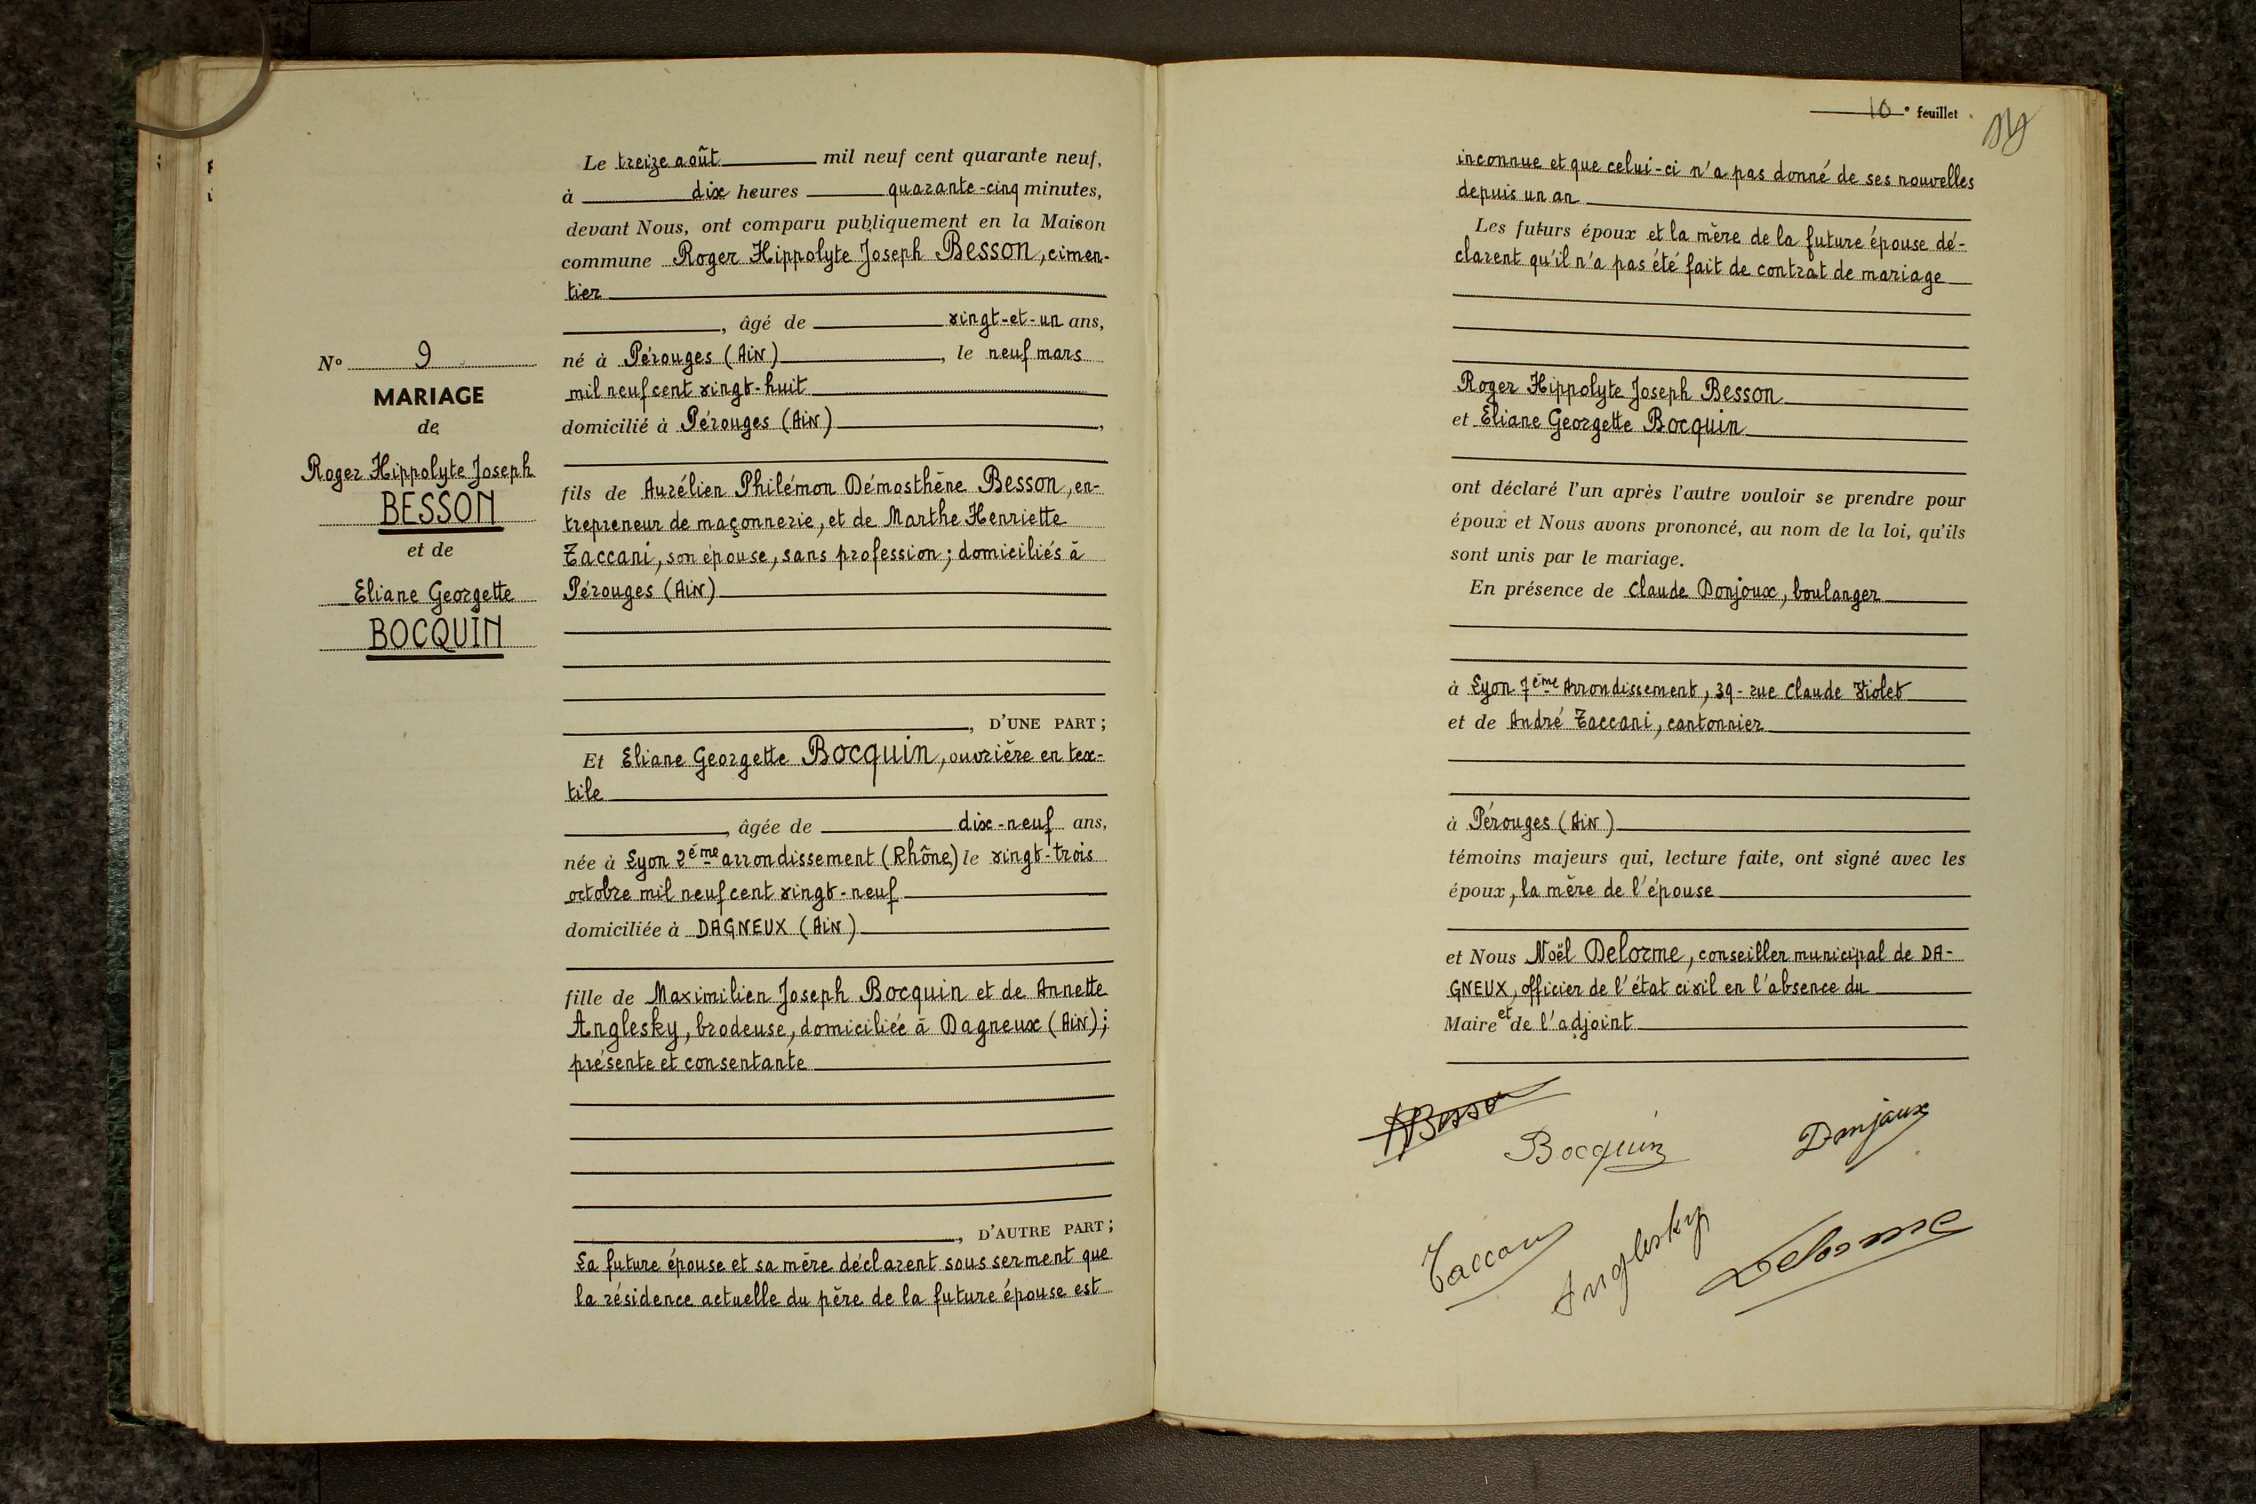 N° 9
MARIAGE
de
Roger Hippolyte Joseph
BESSON
et de
Eliane Georgette
BOCQUIN
Le treize août mil neuf cent quarante neuf,
à dix heures quarante-cinq minutes,
devant Nous, ont comparu publiquement en la Maison
commune Roger Hippolyte Joseph Besson, cimen-
tier
, âgé de vingt-et-un ans,
né à Pérouges (Ain), le neuf mars
mil neuf cent vingt-huit
domicilié à Pérouges (Ain),
fils de Aurélien Philémon Démosthène Besson, en-
trepreneur de maçonnerie, et de Marthe Henriette
Zaccani, son épouse, sans profession; domiciliés à
Pérouges (Ain)
, D'UNE PART;
Et Eliane Georgette Bocquin, ouvrière en tex-
tile
, âgée de dix-neuf ans,
née à Lyon 2ème arrondissement (Rhône) le vingt-trois
octobre mil neuf cent vingt-neuf
domiciliée à DAGNEUX (Ain)
fille de Maximilien Joseph Bocquin et de Annette
Anglesky, brodeuse, domiciliée à Dagneux (Ain);
présente et consentante
, D'AUTRE PART;
La future épouse et sa mère déclarent sous serment que
la résidence actuelle du père de la future épouse est
10e feuillet
inconnue et que celui-ci n'a pas donné de ses nouvelles
depuis un an
Les futurs époux et la mère de la future épouse dé-
clarent qu'il n'a pas été fait de contrat de mariage
Roger Hippolyte Joseph Besson
et Eliane Georgette Bocquin
ont déclaré l'un après l'autre vouloir se prendre pour
époux et Nous avons prononcé, au nom de la loi, qu'ils
sont unis par le mariage.
En présence de Claude Donjoux, boulanger
à Lyon 7ème Arrondissement, 39 - rue Claude Violet
et de André Zaccani, cantonnier
à Pérouges (Ain)
témoins majeurs qui, lecture faite, ont signé avec les
époux, la mère de l'épouse
et Nous Noël Delorme, conseiller municipal de DA-
GNEUX, officier de l'état civil en l'absence du
Maire et de l'adjoint
Besson
Bocquin
Donjoux
Zaccani
Anglesky
Delorme